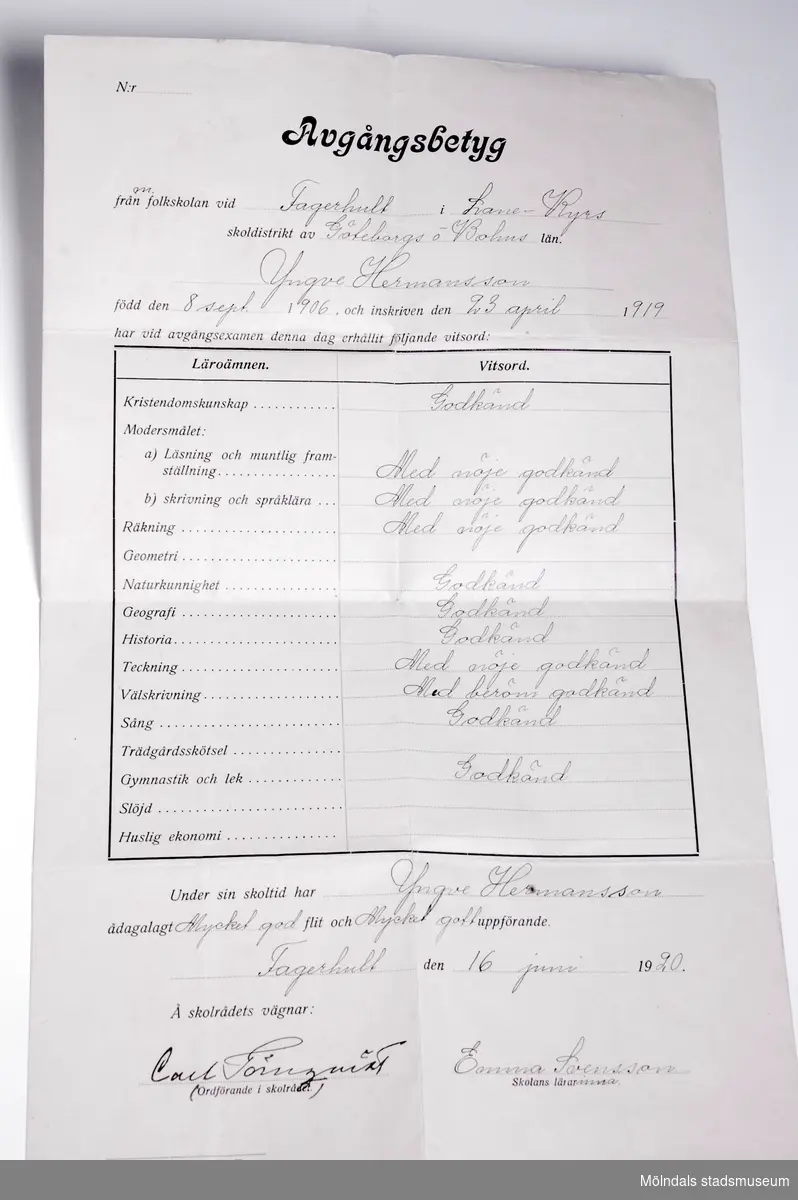 N:r
Avgångsbetyg
m.
från folkskolan vid Fagerhult i Lane-Ryrs
skoldistrikt av Göteborgs o Bohus län.
Yngve Hermansson
född den 8 sept. 1906, och inskriven den 23 april 1919
har vid avgångsexamen denna dag erhållit följande vitsord:
Läroämnen. Vitsord.
Kristendomskunskap Godkänd
Modersmålet:
a) Läsning och muntlig fram-
ställning Med nöje godkänd
b) skrivning och språklära Med nöje godkänd
Räkning Med nöje godkänd
Geometri
Naturkunnighet Godkänd
Geografi Godkänd
Historia Godkänd
Teckning Med nöje godkänd
Välskrivning Med beröm godkänd
Sång Godkänd
Trädgårdsskötsel
Gymnastik och lek Godkänd
Slöjd
Huslig ekonomi
Under sin skoltid har Yngve Hermansson
ådagalagt Mycket god flit och Mycket gott uppförande.
Fagerhult den 16 juni 1920.
Å skolrådets vägnar:
Carl Törnqvist Emma Svensson
(Ordförande i skolrådet.) Skolans lärarinna.
Mölndals stadsmuseum